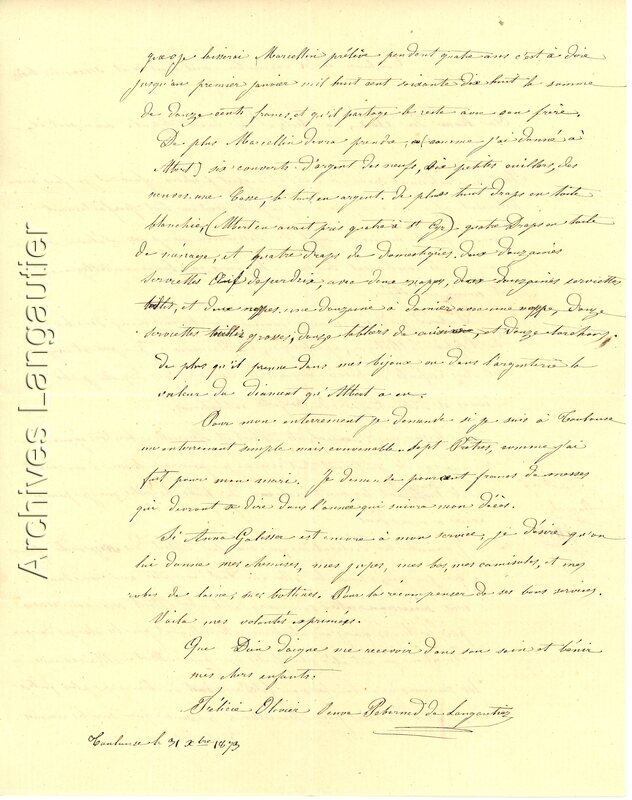 que je laisserai Marcellin prélève pendant quatre ans c'est à dire
jusqu'au premier janvier mil huit cent soixante dix huit la somme
de douze cents francs, et qu'il partage le reste avec son frère.
De plus Marcellin devra prendre, (comme j'ai donné à
Albert) six couverts d'argent des neufs, six petites cuillers, des
neuves, une Tasse, le tout en argent. de plus huit draps en toile
blanchie, (Albert en avait pris quatre à St Cyr) quatre Draps en toile
de ménage, et quatre draps de domestiques, deux douzaines
serviettes avec deux nappes, deux douzaines serviettes
et deux nappes, une douzaine à damier avec une nappe, douze
serviettes grosses, douze tabliers de cuisine, et douze torchons.
de plus qu'il prenne dans mes bijoux ou dans l'argenterie la
valeur du diamant qu'Albert a eu.
Pour mon enterrement je demande si je suis à Toulouse
un enterrement simple mais convenable. Sept Prêtres, comme j'ai
fait pour mon mari. Je demande pour cent francs de messes
qui devront se dire dans l'année qui suivra mon décès.
Si Anna Galissa est encore à mon service, je désire qu'on
lui donne mes chemises, mes jupes, mes bas, mes camisoles, et mes
robes de laine, mes bottines. Pour la récompenser de ses bons services.
Voila mes volontés exprimées.
Que Dieu daigne me recevoir dans son sein et bénir
mes chers enfants.
Félicie Olivier Veuve Pebernad de Langautier
Toulouse le 31 Xbre 1873
Archives Langautier